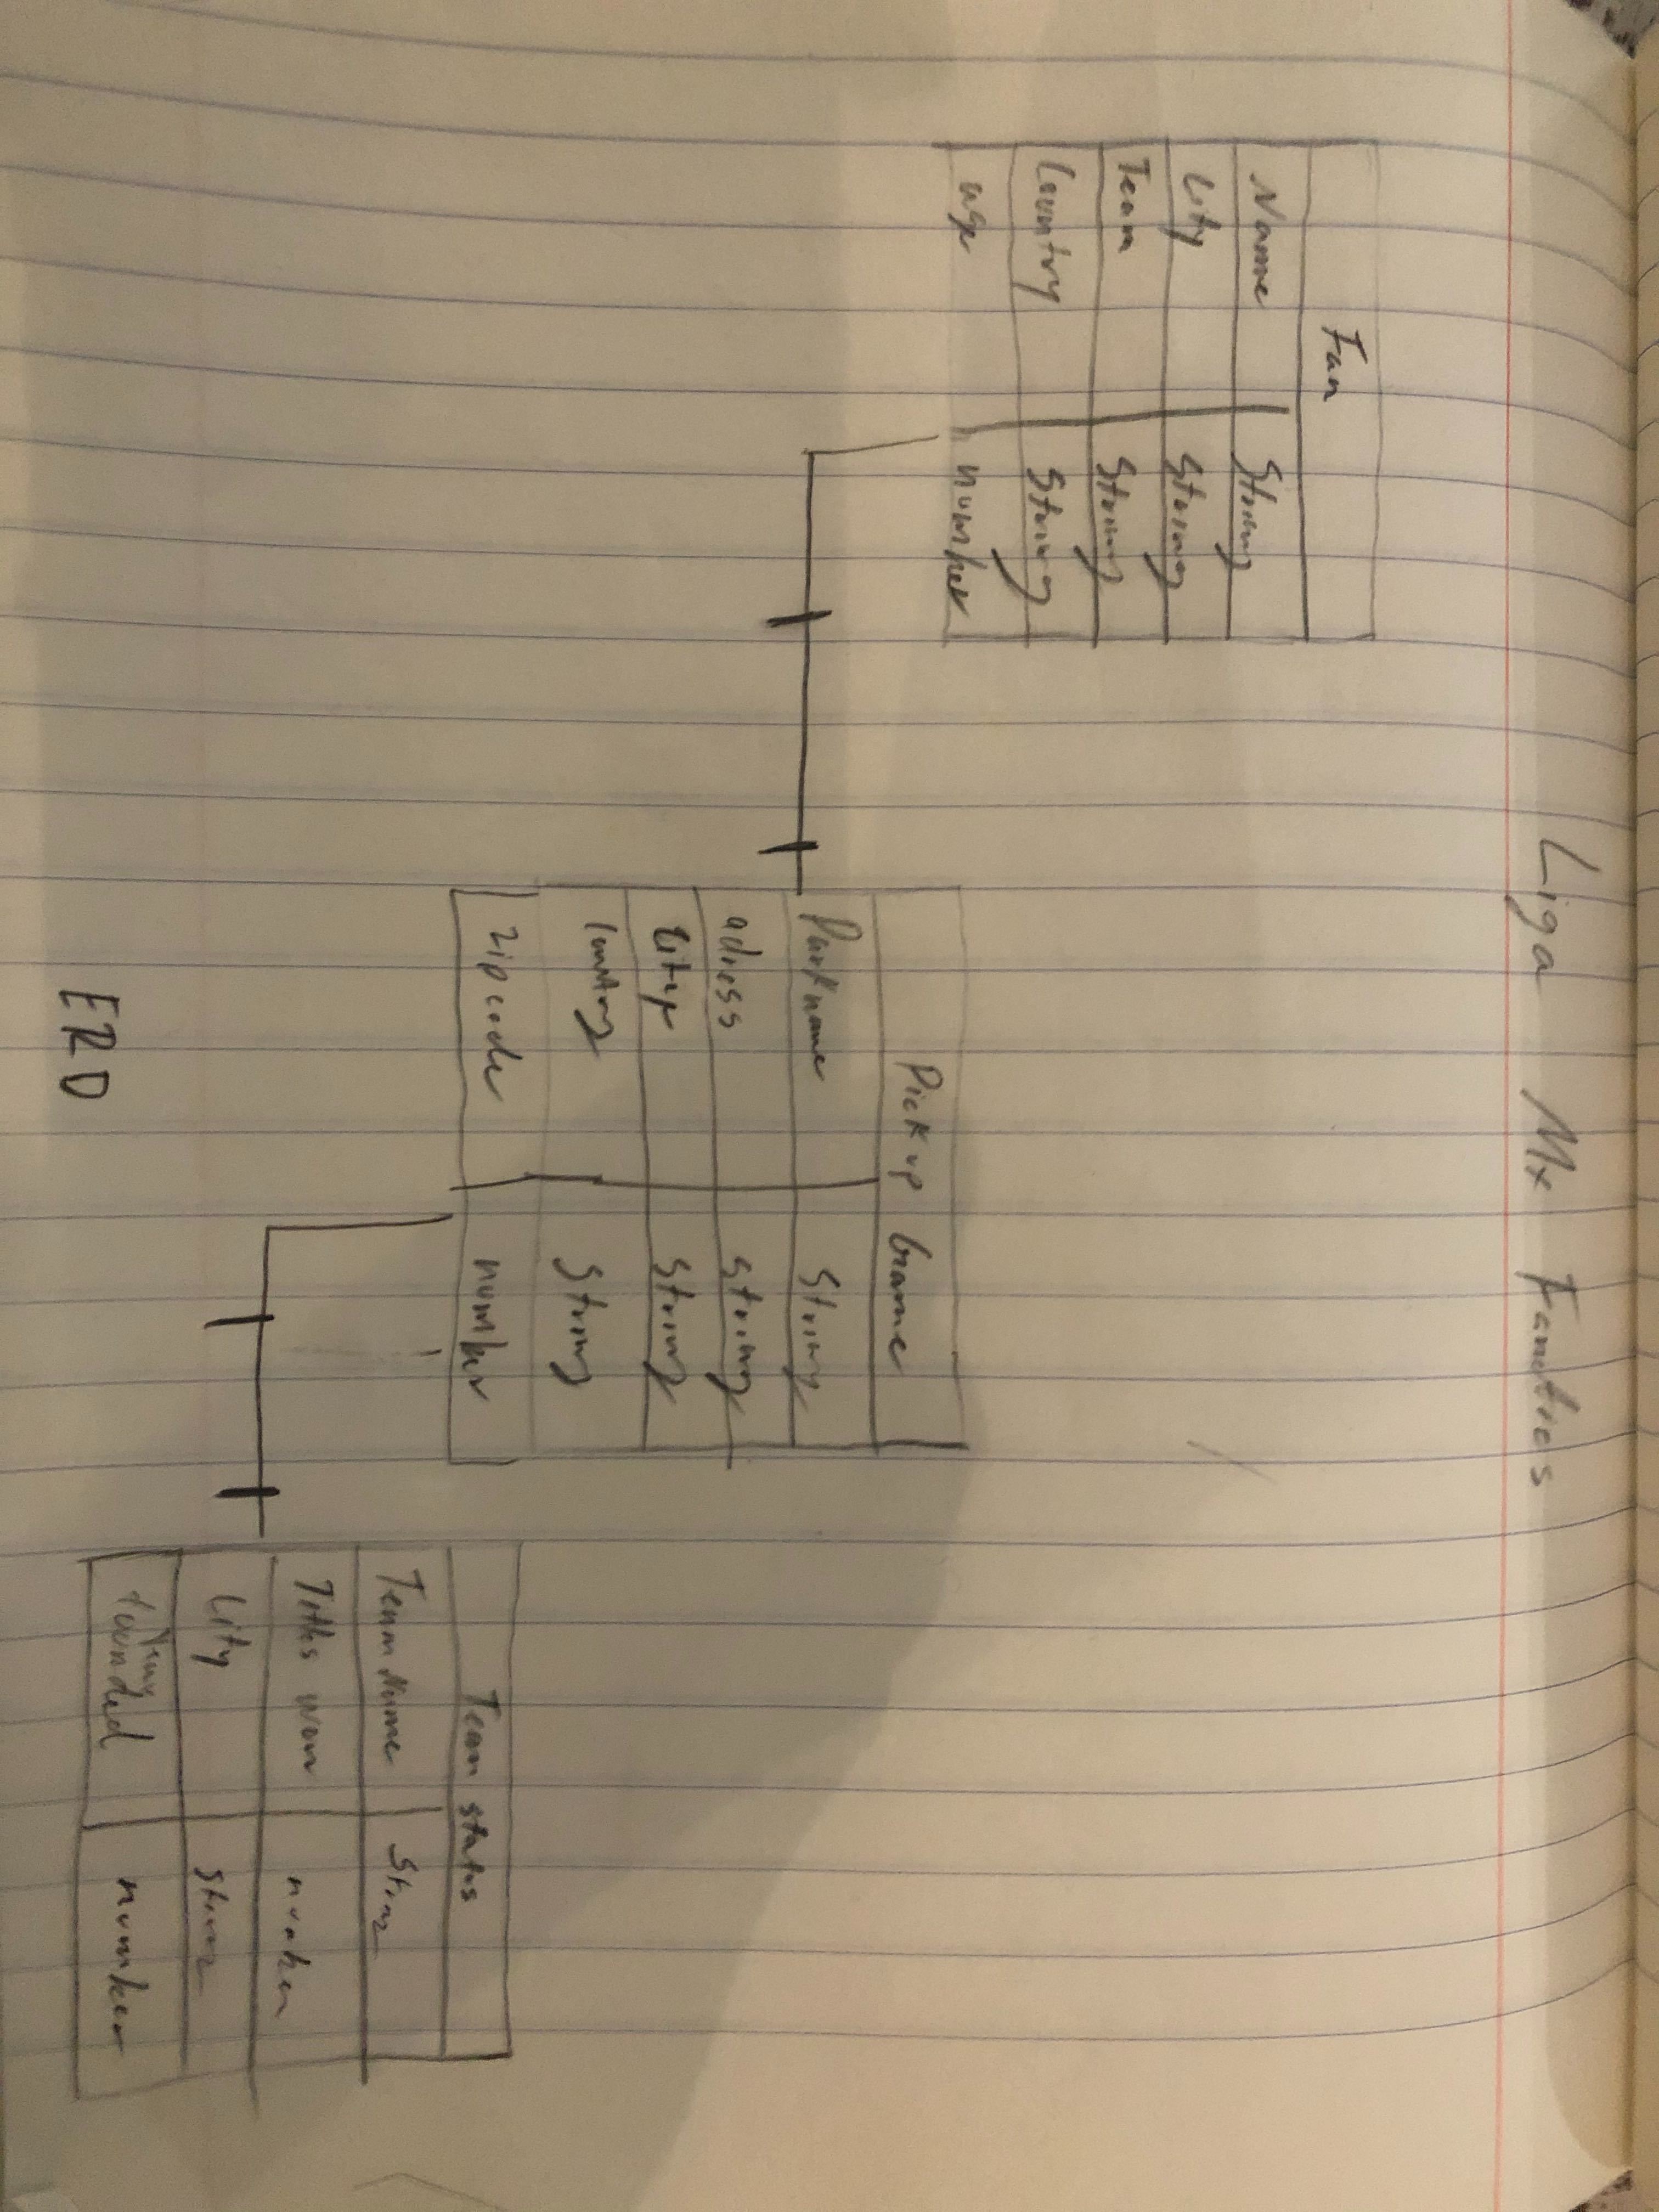 Liga Mx Fanatics
Fan
Name String
City String
Team String
Country String
age number
Pick up Game
Park name String
adress String
City String
Country String
zip code number
Team status
Team Name String
Titles won number
City String
Year
founded number
ERD